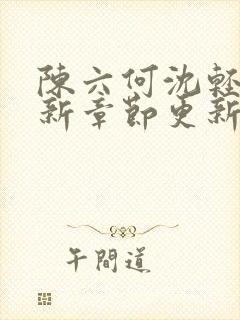 陳六何沈輕
新章節更新
午間道